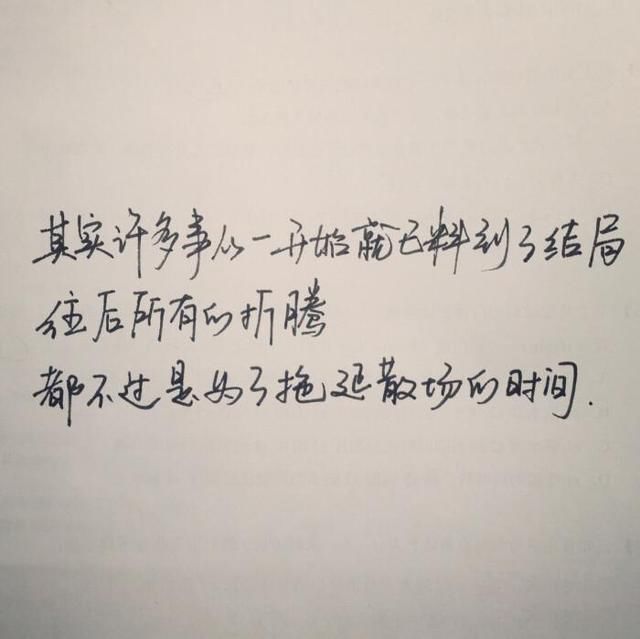 其实许多事从一开始就已料到了结局
往后所有的折腾
都不过是为了拖延散场的时间.